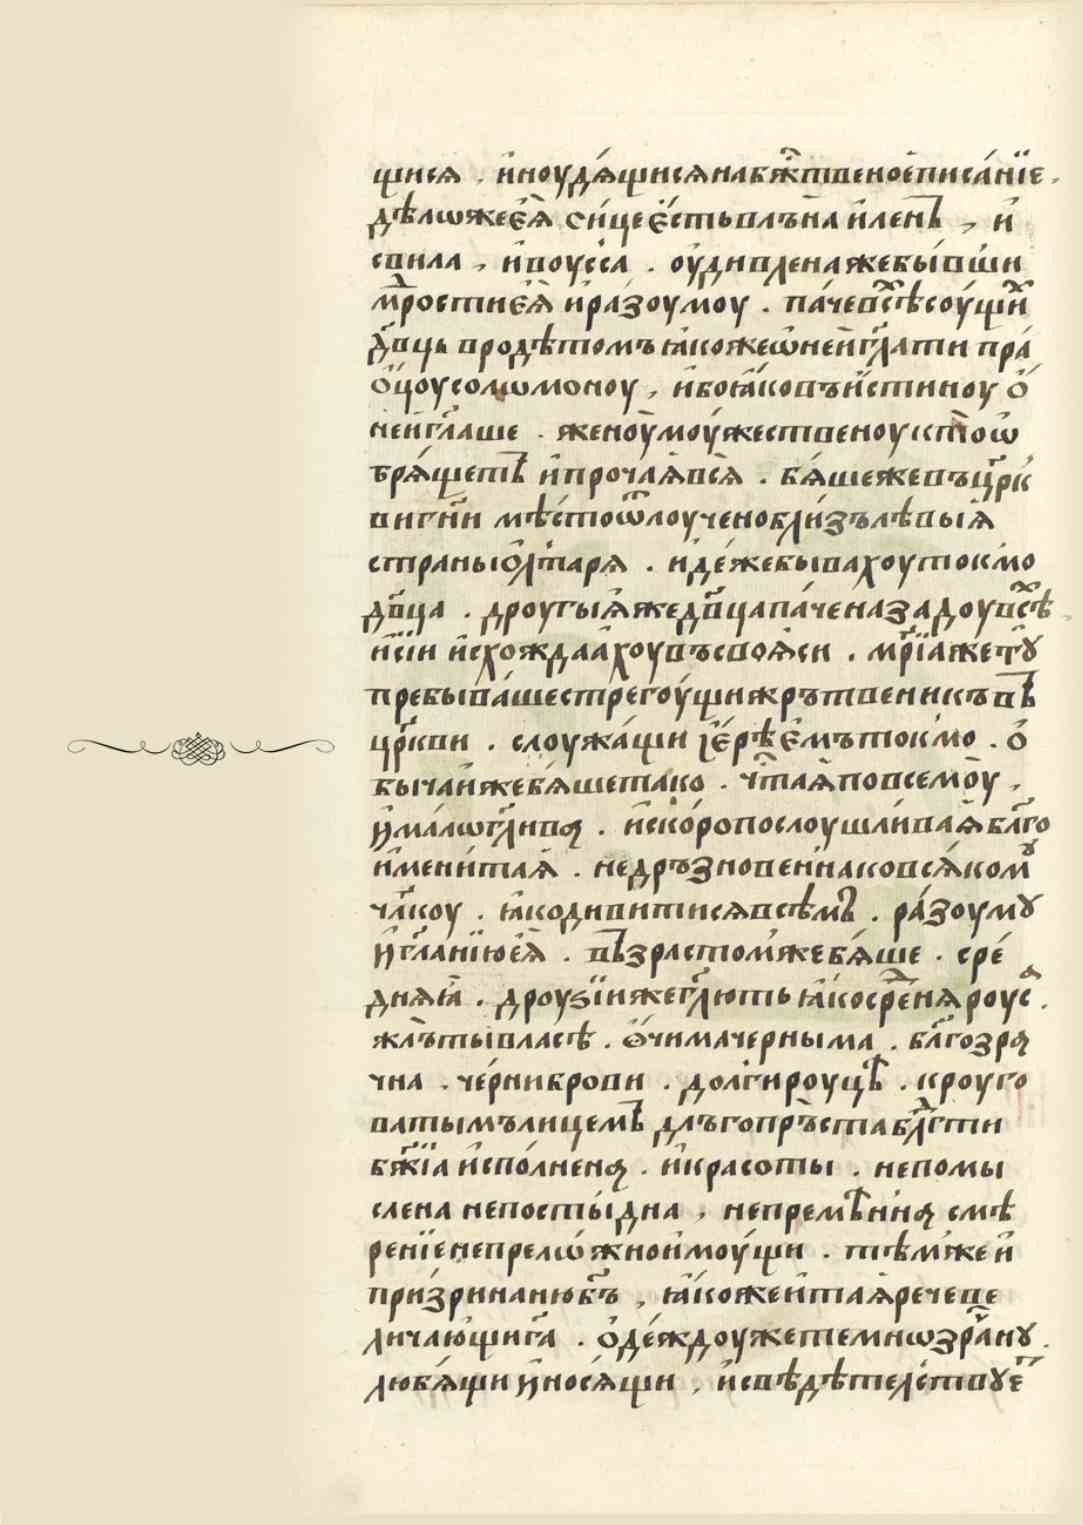 щисѧ . и҆ноудѧ́щисѧнабж҃твеноепⷭ҇исáнїе .
дѣлѡжеєѧ̀ си́цее҆стьвлъ́на и҆лень , и҆
свила , и҆воусса . оу҆дивленажебы́вши
мⷣростиєѧ̀ и҆рáзоумоу . пáчевсѣ́ⷯсоу́щиⷯ
дв҃ць вродѣтомъ ꙗ҆коже ѡ҆неи҆гл҃ати прá
о҆ц҃оусоломоноу , и҆боꙗ҆ковъи҆стиноу о҆
неи҆гл҃аше . женоу̀моу́жественоу кто̀ ѡ҆
брѧ́щетъ и҆прочаѧ҆всѧ̀ . бѧ́шежевъцр҃к
вигн҃и мѣ́стоѿлоученоблиз̾лѣвыѧ̀
страныѻ҆лтарѧ . и҆дѣжебывахоутокмо
дв҃ца . дроугыѧ҆жедв҃цапáченазадоувсѣⷯ
и҆сїи и҆схождаáхоувъсвоѧ҆си . мр҃їажетꙋ̀
пребывáшестрегоу́щижрътвеникъвъ
цр҃кви . слоужáщи і҆ерѣ́є҆мътокмо . о҆
бычаи҆жебѧ́шетако . чⷭ҇таѧ҆повсемоу̀ ,
и҆мáлѡгл҃ива . и҆скóропослоушли́ваѧ҆бл҃го
и҆мени́таѧ̀ . недръзновеннаковсѧ́комꙋ̀
чл҃коу . ꙗ҆кодивитисѧвсѣ́мъ . рáзоумꙋ
и҆гл҃анїюеѧ̀ . въ́зрастомжебѧ́ше . сре́
днѧꙗ̀ . дроузїижегл҃ютьꙗ҆косреⷣнѧ роусⷶ .
жлъ́тывласѣ́ . ѻ҆чимачерныма . бл҃гозра
чна . че́рниброви . долгироуцѣ . кроуго
ватымълицемъ длъгопръ́ста блгⷣти
бж҃їа и҆спо́лнена . и҆красоты . непомы
слена непосты́дна , непремѣ́нна смѣ
ренїенепрело́жнои҆моу́щи . тѣ́мжеи҆
при́зринанюбг҃ъ , ꙗ҆кожеи҆таѧ҆рече ве
личаю҆щига . ѻ҆де́ждоужетемнозрáнꙋ .
любѧ́щи и҆носѧ́щи , и҆свѣдѣ́телствꙋеⷮ